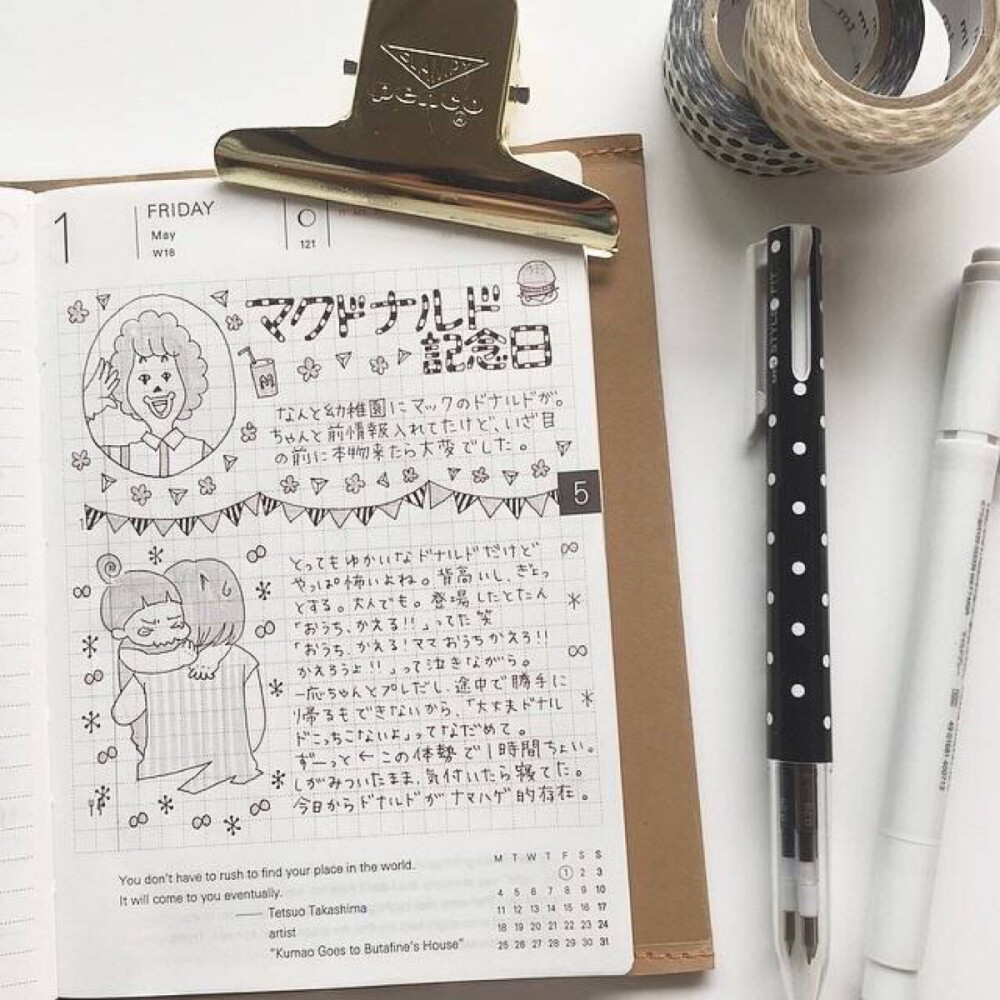 CLAMPY
penco
mt
mt
1
FRIDAY
May
W18
121
マクドナルド
記念日
なんと幼稚園にマックのドナルドが。
ちゃんと前情報入れてたけど、いざ目
の前に本物来たら大変でした。
5
とってもゆかいなドナルドだけど
やっぱ怖いよね。背高いし、ぎょっ
とする。大人でも。登場したとたん
「おうち、かえる!!」ってた笑
「おうち、かえる!ママおうちかえろ!!
かえろうよ!!」って泣きながら。
一応ちゃんとプレだし、途中で勝手に
帰るもできないから、「大丈夫ドナル
ドこっちこないよ」ってなだめて。
ずーっと←この体勢で1時間ちょい。
しがみついたまま、気付いたら寝てた。
今日からドナルドがナマハゲ的存在。
You don't have to rush to find your place in the world.
It will come to you eventually.
Tetsuo Takashima
artist
"Kumao Goes to Butafine's House"
M T W T F S S
1 2 3
4 5 6 7 8 9 10
11 12 13 14 15 16 17
18 19 20 21 22 23 24
25 26 27 28 29 30 31
STYLE FIT